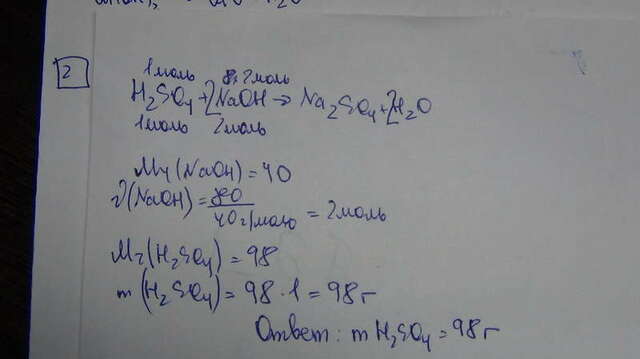 2
1моль 2моль
H₂SO₄ + 2NaOH → Na₂SO₄ + 2H₂O
1моль 2моль
Mr(NaOH) = 40
ν(NaOH) = 80 / 40г/моль = 2моль
Mr(H₂SO₄) = 98
m(H₂SO₄) = 98 · 1 = 98г
Ответ: m H₂SO₄ = 98г